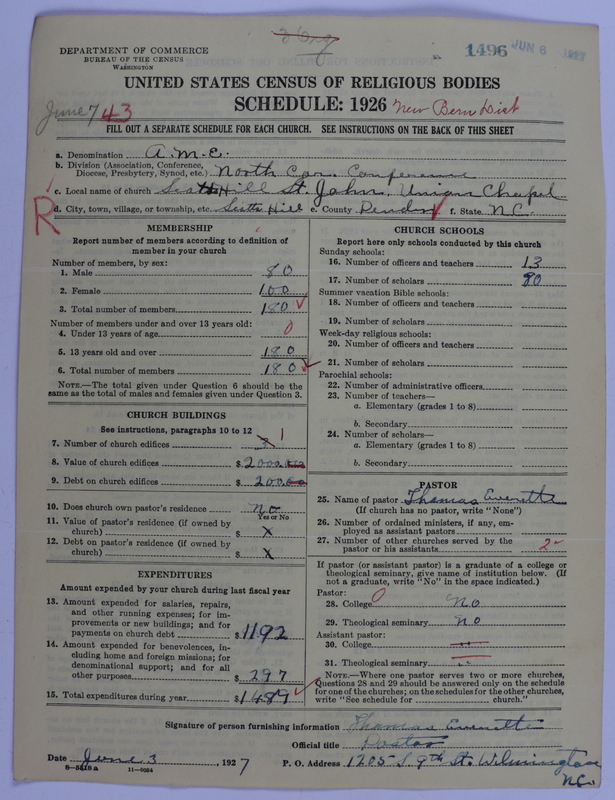 DEPARTMENT OF COMMERCE
BUREAU OF THE CENSUS
WASHINGTON
1496 JUN 8 1927
UNITED STATES CENSUS OF RELIGIOUS BODIES
SCHEDULE: 1926 New Bern Dist
June 7 43
FILL OUT A SEPARATE SCHEDULE FOR EACH CHURCH. SEE INSTRUCTIONS ON THE BACK OF THIS SHEET
a. Denomination A. M. E.
b. Division (Association, Conference, Diocese, Presbytery, Synod, etc.) North Car. Conference
c. Local name of church Hill St. John, Union Chapel
R
d. City, town, village, or township, etc. Hill e. County Pender f. State N.C.
MEMBERSHIP
Report number of members according to definition of
member in your church
Number of members, by sex:
1. Male 80
2. Female 100
3. Total number of members 180
Number of members under and over 13 years old:
4. Under 13 years of age 0
5. 13 years old and over 180
6. Total number of members 180
NOTE.—The total given under Question 6 should be
same as the total of males and females given under Question 3.
CHURCH BUILDINGS
See instructions, paragraphs 10 to 12
7. Number of church edifices 1
8. Value of church edifices $ 2000.00
9. Debt on church edifices $ 200.00
10. Does church own pastor's residence No
Yes or No
11. Value of pastor's residence (if owned by
church) $ X
12. Debt on pastor's residence (if owned by
church) $ X
EXPENDITURES
Amount expended by your church during last fiscal year
13. Amount expended for salaries, repairs,
and other running expenses; for im-
provements or new buildings; and for
payments on church debt $ 1192
14. Amount expended for benevolences, in-
cluding home and foreign missions; for
denominational support; and for all
other purposes $ 297
15. Total expenditures during year $ 1489
CHURCH SCHOOLS
Report here only schools conducted by this church
Sunday schools:
16. Number of officers and teachers 13
17. Number of scholars 80
Summer vacation Bible schools:
18. Number of officers and teachers
19. Number of scholars
Week-day religious schools:
20. Number of officers and teachers
21. Number of scholars
Parochial schools:
22. Number of administrative officers
23. Number of teachers—
a. Elementary (grades 1 to 8)
b. Secondary
24. Number of scholars—
a. Elementary (grades 1 to 8)
b. Secondary
PASTOR
25. Name of pastor Thomas Everette
(If church has no pastor, write "None")
26. Number of ordained ministers, if any, em-
ployed as assistant pastors
27. Number of other churches served by the
pastor or his assistants 2
If pastor (or assistant pastor) is a graduate of a college or
theological seminary, give name of institution below. (If
not a graduate, write "No" in the space indicated.)
Pastor:
28. College 0 No
29. Theological seminary No
Assistant pastor:
30. College
31. Theological seminary
NOTE.—Where one pastor serves two or more churches,
Questions 28 and 29 should be answered only on the schedule
for one of the churches; on the schedules for the other churches,
write "See schedule for church."
Signature of person furnishing information Thomas Everette
Official title Pastor
Date June 3, 1927 P. O. Address 1205 S. 9th St. Wilmington
N.C.
8—5818a 11—9034